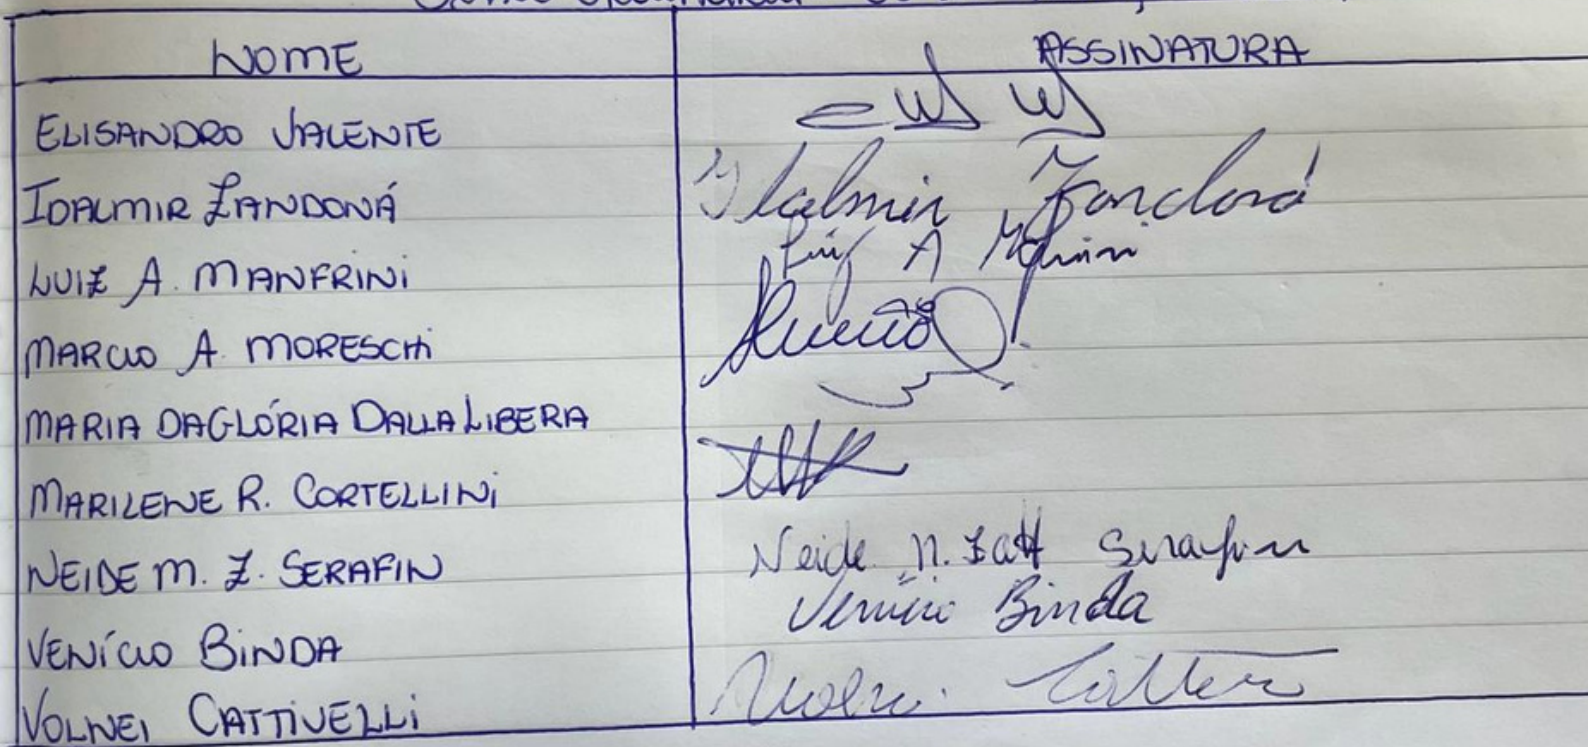 NOME ASSINATURA
ELISANDRO VALENTE
IDALMIR ZANDONÁ Idalmir Zandoná
LUIZ A. MANFRINI Luiz A
MARCIO A. MORESCHI
MARIA DAGLÓRIA DALLA LIBERA
MARILENE R. CORTELLINI
NEIDE M. Z. SERAFIN Neide M. Zatt Serafin
VENÍCIO BINDA Venício Binda
VOLNEI CATTIVELLI Volnei